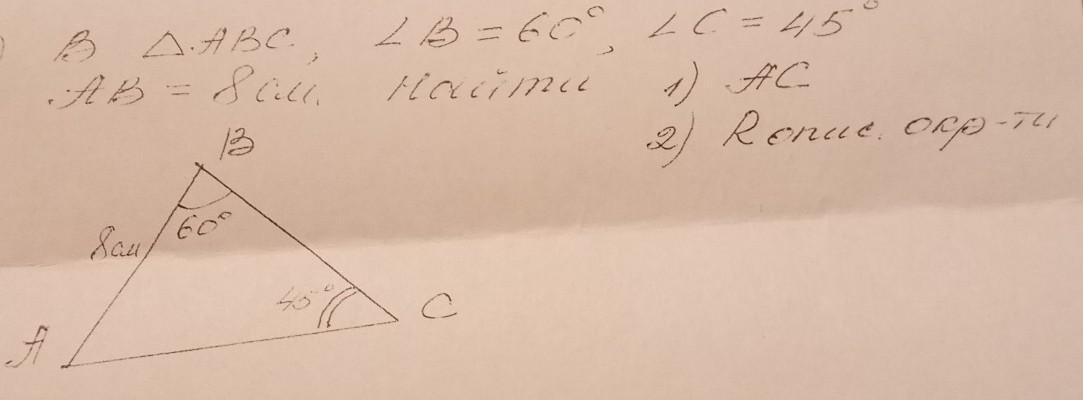 ) В △ABC, ∠B = 60°, ∠C = 45°
AB = 8см. Найти 1) AC
2) Rопис. окр-ти
B
60°
8см
45°
C
A